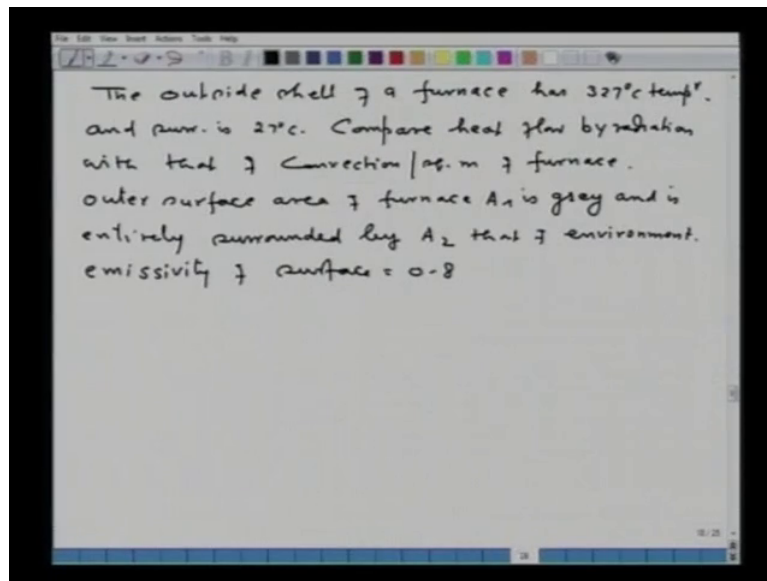 File Edit View Insert Actions Tools Help
The outside shell of a furnace has 327°c tempr.
and surr. is 27°c. Compare heat flow by radiation
with that of Convection / sq. m of furnace.
outer surface area of furnace A1 is grey and is
entirely surrounded by A2 that of environment.
emissivity of surface = 0.8